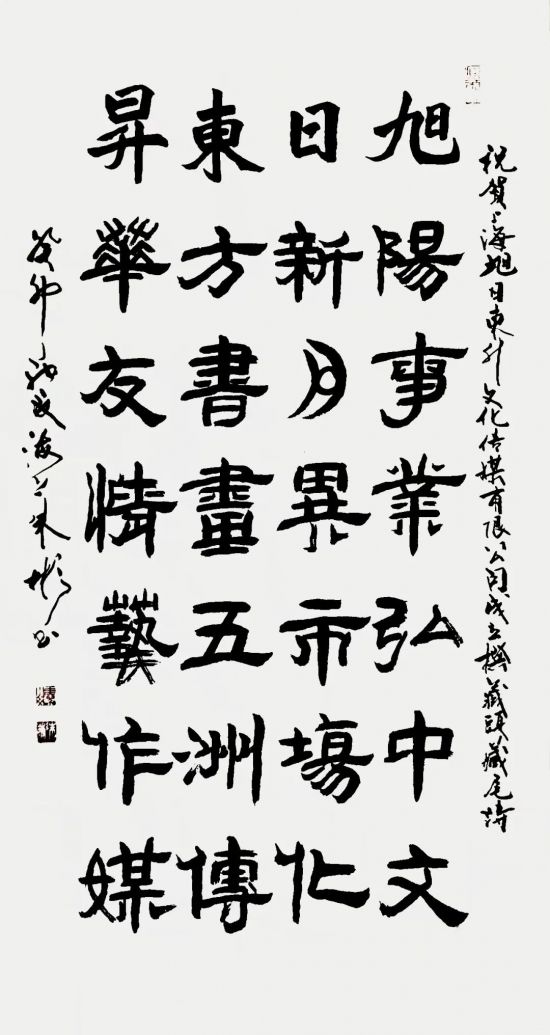 祝贺上海旭日东升文化传媒有限公司成立撰藏頭藏尾詩
旭陽事業弘中文
日新月異市場化
東方書畫五洲傳
昇華友情藝作媒
癸卯 海上朱彬書